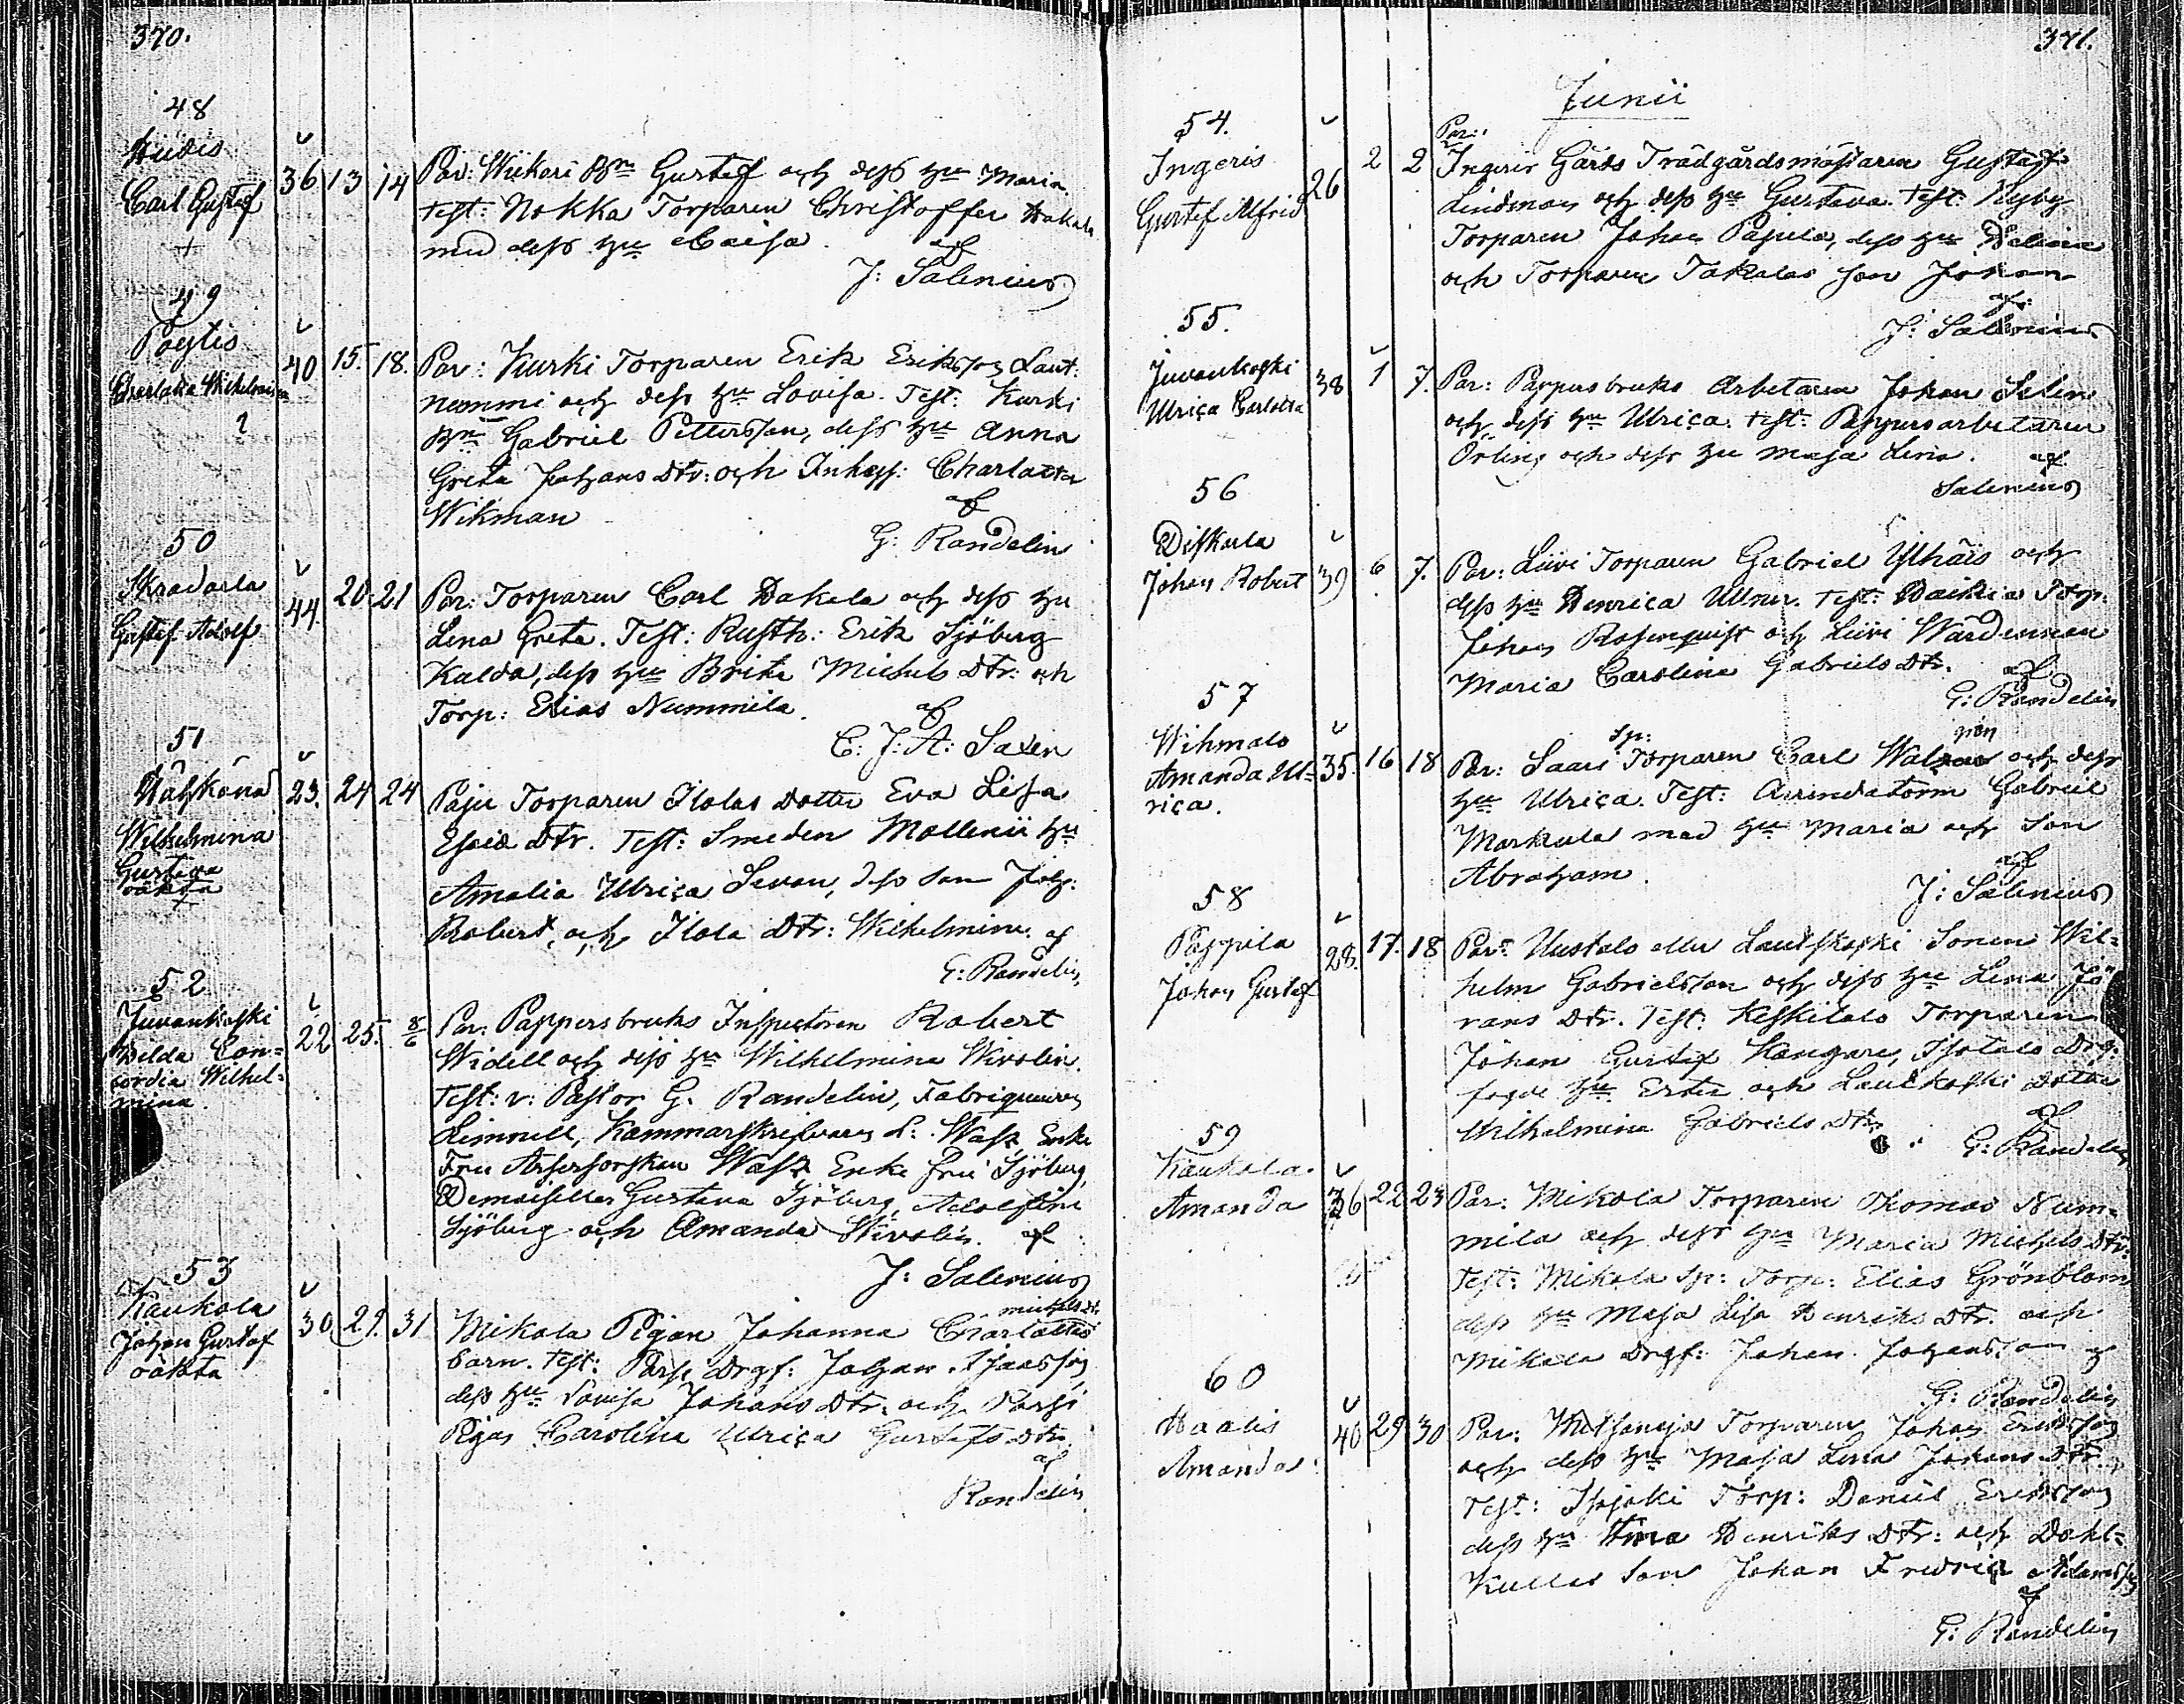 370.
48
Carl Gustaf
36 13 14
Par: Wükari Bn Gustaf och dess hu Maria
Test: Nokka Torparen Christoffer Hakala
med dess hu Caisa. af
J: Salenius
49
Pöytis
Charlotta Wilhelmina
40 15. 18.
Par: Kurki Torparen Erik Eriksson Laut:
nummi och dess hu Lovisa. Test: Kurki
Bn Gabriel Pettersson, dess hu Anna
Greta Johans Dtr: och Inhys: Charlotta
Wikman af
G: Randelin
50
Skradarla
Gustaf Adolf
44. 20. 21
Par: Torparen Carl Hakala och dess hu
Lena Greta. Test: Rusth: Erik Sjöberg
Kulda, dess hu Brita Michels Dtr: och
Torp: Elias Nummila. af
C: J: A: Saxen
51
Wilhelmina
Gustava
oäkta
23. 24 24
Paju Torparen Ilolas dotter Eva Lisa
Esais Dtr. Test: Smeden Mollenii hu
Amalia Ulrica Levan, dess son Joh:
Robert, och Ilola Dtr: Wilhelmina. af
G: Randelin
52
Juvankoski
Hilda Con=
cordia Wilhel=
mina
22 25. 8/6
Par: Pappersbruks Inspectoren Robert
Widell och dess hu Wilhelmina Wivolin.
Test: v: Pastor G. Randelin, Fabriqueuren
Limnell, Kammarskrifvaren L: Wass, Enke
Fru Assessorskan Wass Enke fru Sjöberg,
Demoiseller Gustava Sjöberg, Adolfina
Sjöberg och Amanda Wivolin. af
J: Salenius
53
Kaukola
Johan Gustaf
oäkta
30 29. 31
Michels Dtr
Mikola Pigan Johanna Charlottas
barn. Test: Parsi Drgf: Johan Isaksson,
dess hu Lovisa Johans Dtr: och Parsi
Pigan Carolina Ulrica Gustafs Dtr
af
Randelin
371.
Junii
54.
Ingeris
Gustaf Alfrid
26 2 2
Par:
Ingeris Gårds Trädgårdsmästaren Gustaf
Lindman och dess hu Gustava. Test: Nyby
Torparen Johan Papula, dess hu Helena
och Torparen Takalas son Johan
af:
J: Salenius
55.
Juvankoski
Ulrica Carlotta
38 1 7.
Par: Pappersbruks Arbetaren Johan Selin
och dess hu Ulrica. Test: Pappersarbetaren
Örling och dess hu Maja Lena. af
Salenius
56
Diskarla
Johan Robert
39 6 7.
Par: Liivi Torparen Gabriel Ylhäis och
dess hu Henrica Ullner. Test: Haikia Torp:
Johan Rosenquist och Liivi Wärdinnan
Maria Carolina Gabriels Dtr. af
G: Randelin
57
Wihmalo
Amanda Ul=
rica.
35. 16 18
Par: Saari Sp: Torparen Carl Och dess
hu Ulrica. Test: Arrendatorn Gabriel
Markula med hu Maria och Son
Abraham. af
J: Salenius
58
Pappila
Johan Gustaf
28. 17. 18
Par: Uustalo eller Lautkoski Sonen Wil=
helm Gabrielsson och dess hu Lena Jö
rans Dtr. Test: Keskitalo Torparen
Johan Gustaf Kangare, Isotalo Drg:
fogde hu Ester och Lautkoski dotter
Wilhelmina Gabriels Dtr. af
G: Randelin
59
Kaukola
Amanda
36 22 23
Par: Mikola Torparen Thomas Num=
mila och dess hu Maria Michels Dtr:
Test: Mikola Sp: Torp: Elias Grönblom
dess hu Maja Lisa Henriks Dtr. och
Mikola Drgf: Johan Johansson af
G: Randelin
60
Haalis
Amanda
40 29 30
Par: Torparen Johan Eriksson
och dess hu Maja Lena Johans Dtr.
Test: Isojoki Torp: Daniel Eriksson
dess hu Stina Henriks Dtr: och Dahl=
kullas Son Johan Fredric Adamsson
af
G: Randelin